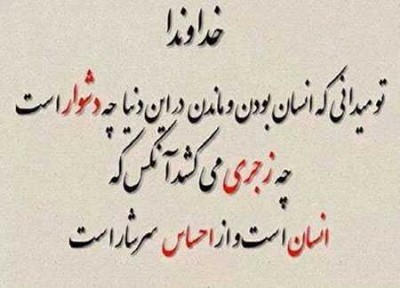 خداوندا
تو میدانی که انسان بودن و ماندن در این دنیا چه دشوار است
چه زجری می کشد آنکس که
انسان است و از احساس سرشار است